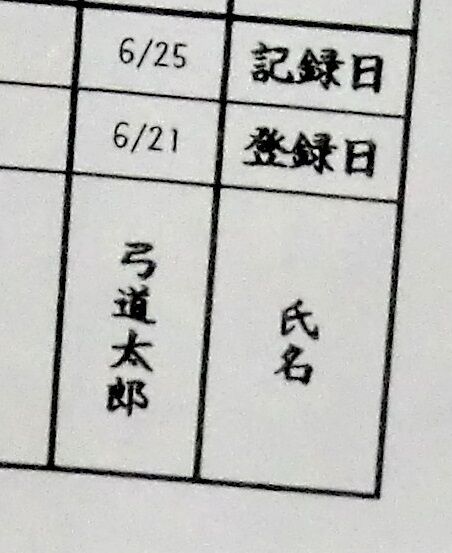 記録日
登録日
氏名
6/25
6/21
弓道太郎